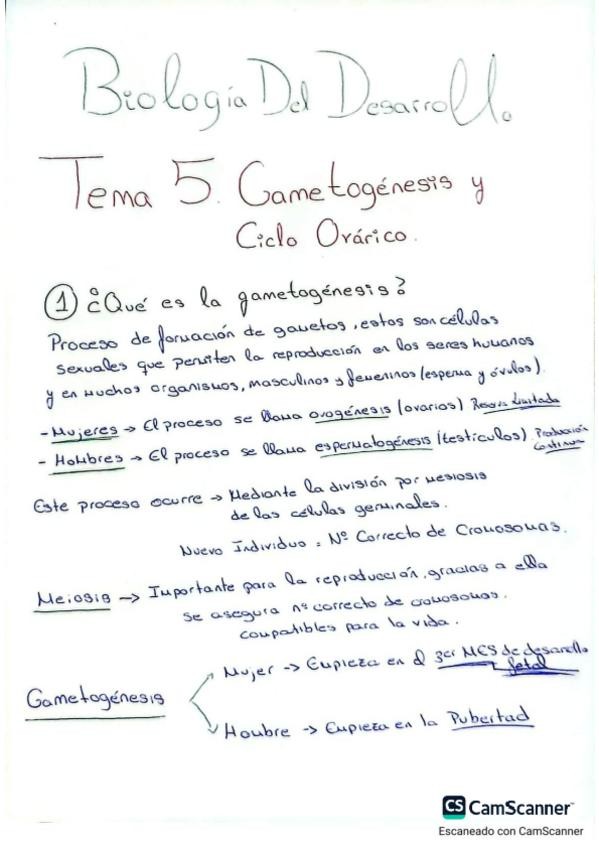 Biología Del Desarrollo
Tema 5. Gametogénesis y
Ciclo Ovárico.
① ¿Qué es la gametogénesis?
Proceso de formación de gametos, estos son células
sexuales que permiten la reproducción en los seres humanos
y en muchos organismos, masculinos y femeninos (esperma y óvulos).
- Mujeres → El proceso se llama ovogénesis (ovarios) Reserva Limitada
- Hombres → El proceso se llama espermatogénesis (testículos) Producción
Continua
Este proceso ocurre → Mediante la división por meiosis
de las células germinales.
Nuevo Individuo : Nº Correcto de Cromosomas.
Meiosis → Importante para la reproducción, gracias a ella
se asegura nº correcto de cromosomas.
compatibles para la vida.
Mujer → Empieza en el 3er MES de desarrollo
fetal
Gametogénesis
Hombre → Empieza en la Pubertad
CS CamScanner
Escaneado con CamScanner